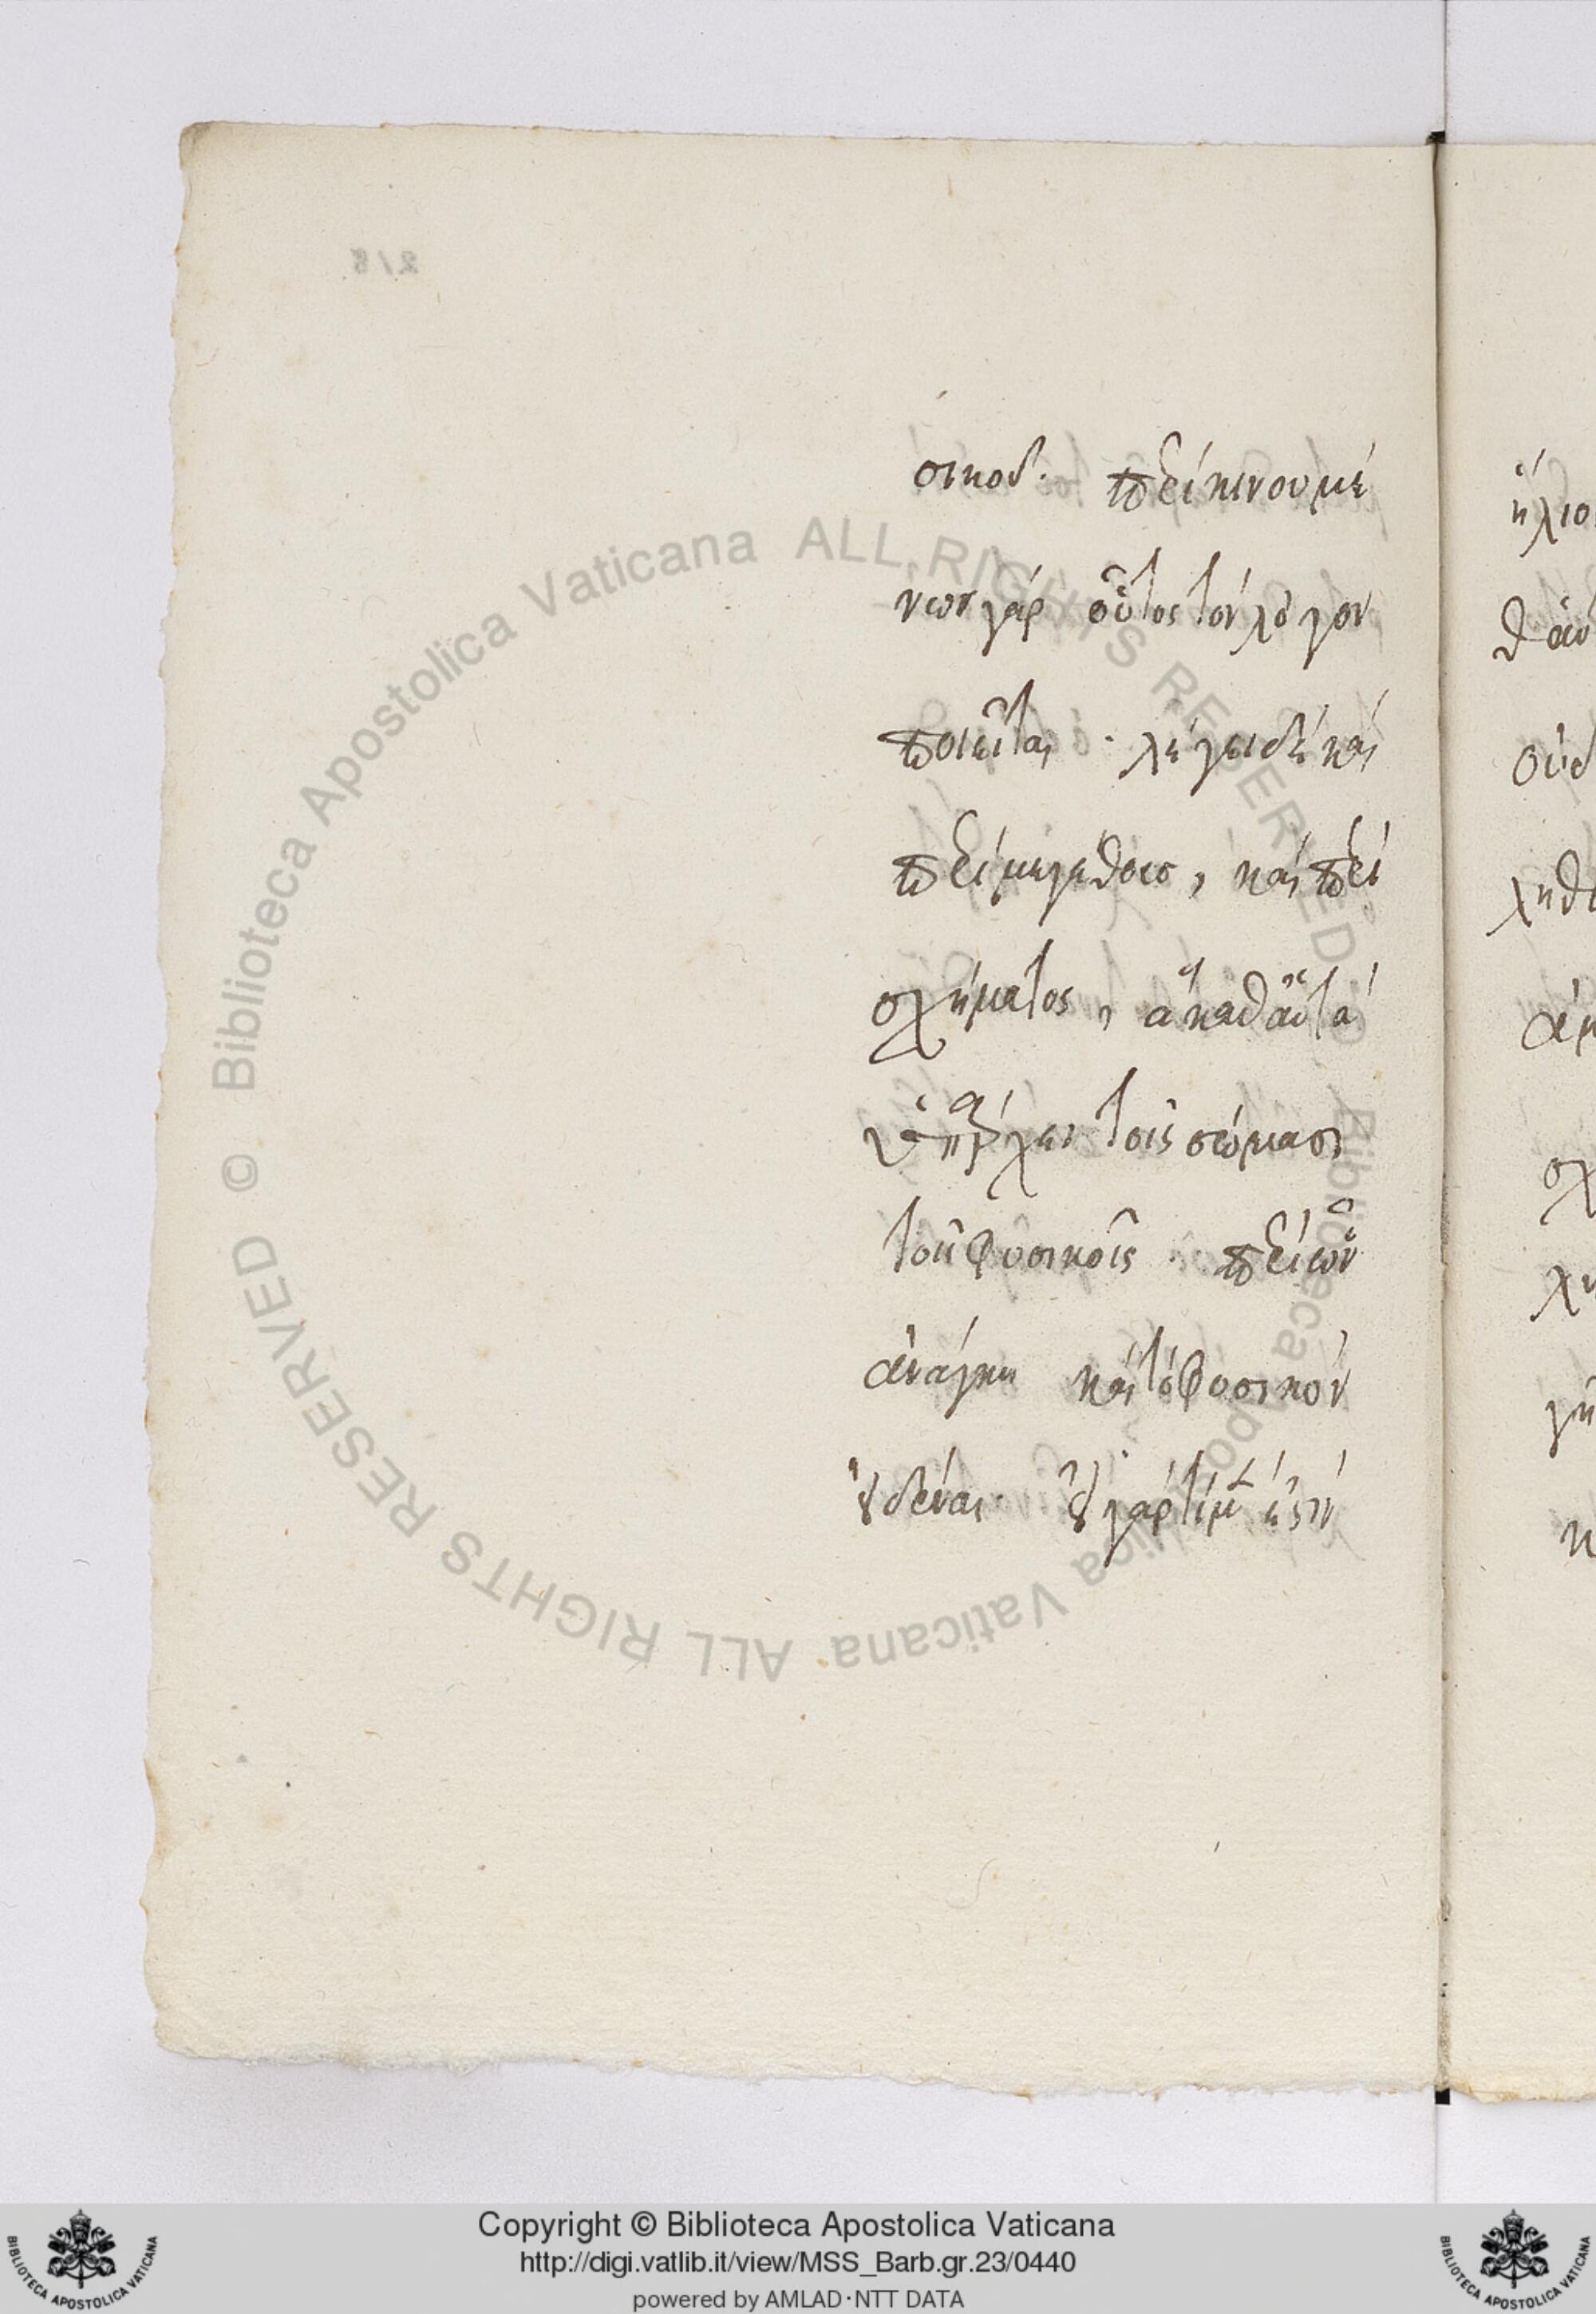 σικοῦ. περὶ κινουμέ
νων γὰρ οὗτος τὸν λόγον
ποιεῖται · λέγει δὲ καὶ
περὶ μεγέθους, καὶ περὶ
σχήματος, ἃ καθ' αὑτὰ
ὑπάρχει τοῖς σώμασι
τοῖς φυσικοῖς · περὶ ὧν
ἀνάγκη καὶ τὸ φυσικὸν
εἰδέναι. εἰ γὰρ τιμ ἐστὶ
ἥλιο
θ' αὑ
οὐδ
χηθ
σχ
γῆ
© Biblioteca Apostolica Vaticana ALL RIGHTS RESERVED
© Biblioteca Apostolica Vaticana ALL RIGHTS RESERVED
Copyright © Biblioteca Apostolica Vaticana
http://digi.vatlib.it/view/MSS_Barb.gr.23/0440
powered by AMLAD·NTT DATA
BIBLIOTECA APOSTOLICA VATICANA
BIBLIOTECA APOSTOLICA VATICANA